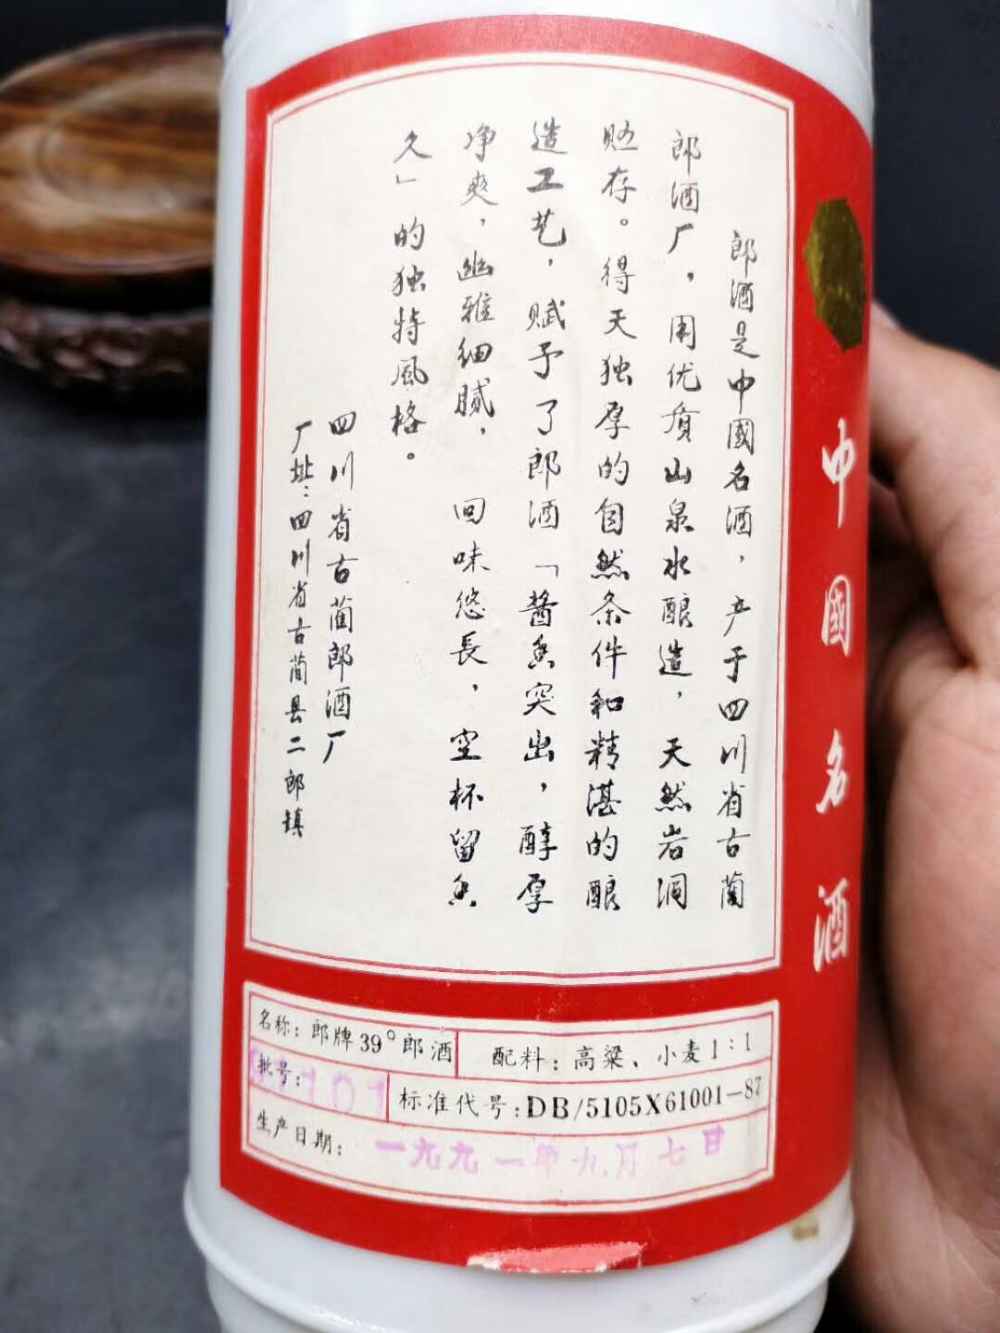 中國名酒
郎酒是中國名酒，产于四川省古蔺
郎酒厂，用优质山泉水酿造，天然岩洞
贮存。得天独厚的自然条件和精湛的酿
造工艺，赋予了郎酒「酱香突出，醇厚
净爽，幽雅细腻，回味悠長，空杯留香
久」的独特風格。
四川省古蔺郎酒厂
厂址：四川省古蔺县二郎镇
名称：郎牌39°郎酒
配料：高粱、小麦1：1
批号：101
标准代号：DB/5105X61001-87
生产日期：一九九一年九月七日